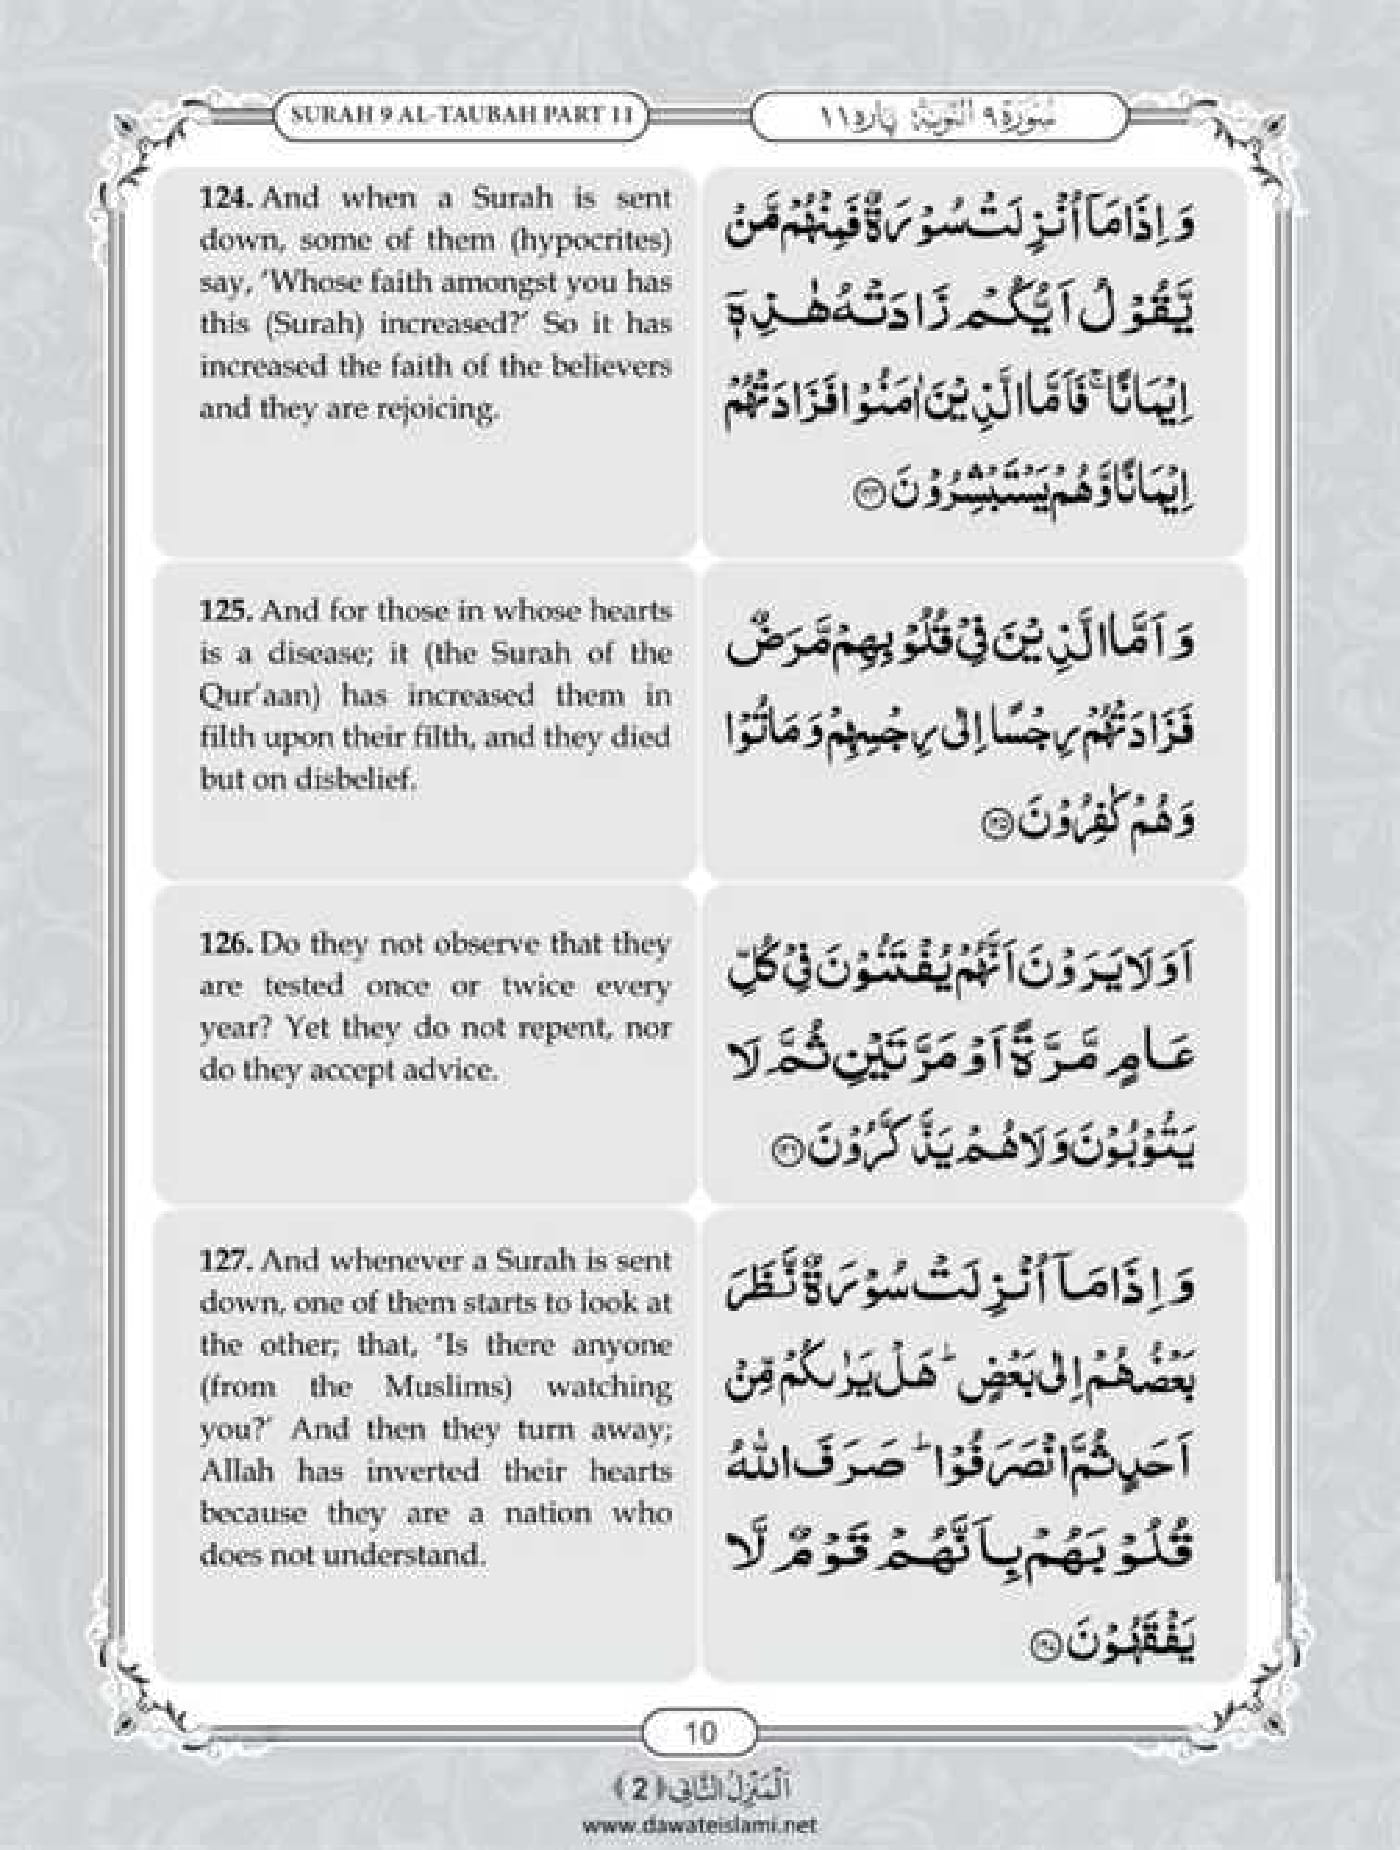 SURAH 9 AL-TAUBAH PART 11
سُوْرَة ٩ التَّوْبَة پاره ١١
124. And when a Surah is sent
down, some of them (hypocrites)
say, ‘Whose faith amongst you has
this (Surah) increased?’ So it has
increased the faith of the believers
and they are rejoicing.
وَ اِذَا مَاۤ اُنْزِلَتْ سُوْرَةٌ فَمِنْهُمْ مَّنْ
یَّقُوْلُ اَیُّكُمْ زَادَتْهُ هٰذِهٖۤ
اِیْمَانًاۚ فَاَمَّا الَّذِیْنَ اٰمَنُوْا فَزَادَتْهُمْ
اِیْمَانًا وَّ هُمْ یَسْتَبْشِرُوْنَ
125. And for those in whose hearts
is a disease; it (the Surah of the
Qur’aan) has increased them in
filth upon their filth, and they died
but on disbelief.
وَ اَمَّا الَّذِیْنَ فِیْ قُلُوْبِهِمْ مَّرَضٌ
فَزَادَتْهُمْ رِجْسًا اِلٰى رِجْسِهِمْ وَ مَاتُوْا
وَ هُمْ كٰفِرُوْنَ
126. Do they not observe that they
are tested once or twice every
year? Yet they do not repent, nor
do they accept advice.
اَوَ لَا یَرَوْنَ اَنَّهُمْ یُفْتَنُوْنَ فِیْ كُلِّ
عَامٍ مَّرَّةً اَوْ مَرَّتَیْنِ ثُمَّ لَا
یَتُوْبُوْنَ وَ لَا هُمْ یَذَّكَّرُوْنَ
127. And whenever a Surah is sent
down, one of them starts to look at
the other; that, ‘Is there anyone
(from the Muslims) watching
you?’ And then they turn away;
Allah has inverted their hearts
because they are a nation who
does not understand.
وَ اِذَا مَاۤ اُنْزِلَتْ سُوْرَةٌ نَّظَرَ
بَعْضُهُمْ اِلٰى بَعْضٍؕ هَلْ یَرٰىكُمْ مِّنْ
اَحَدٍ ثُمَّ انْصَرَفُوْاؕ صَرَفَ اللّٰهُ
قُلُوْبَهُمْ بِاَنَّهُمْ قَوْمٌ لَّا
یَفْقَهُوْنَ
10
اَلْمَنْزِلُ الثَّانِی ﴿2﴾
www.dawateislami.net